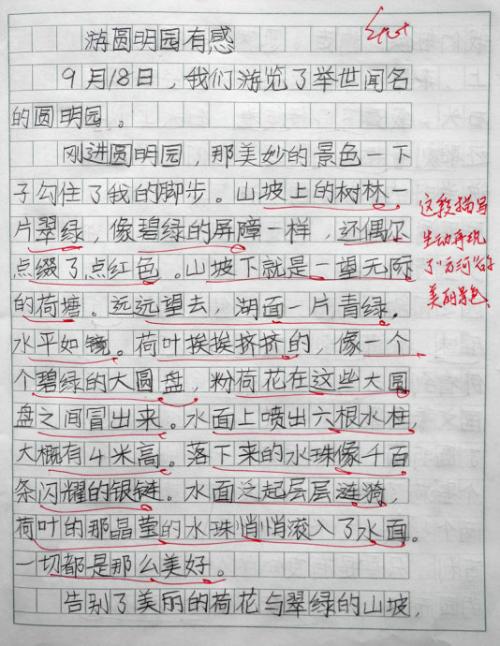 游圆明园有感
9月18日，我们游览了举世闻名
的圆明园。
刚进圆明园，那美妙的景色一下
子勾住了我的脚步。山坡上的树林一
片翠绿，像碧绿的屏障一样，还偶尔
点缀了点红色。山坡下就是一望无际
的荷塘。远远望去，湖面一片青绿。
水平如镜。荷叶挨挨挤挤的，像一个
个碧绿的大圆盘，粉荷花在这些大圆
盘之间冒出来。水面上喷出六根水柱，
大概有4米高。落下来的水珠像千百
条闪耀的银链。水面泛起层层涟漪，
荷叶的那晶莹的水珠悄悄滚入了水面。
一切都是那么美好。
告别了美丽的荷花与翠绿的山坡，
这段描写
生动再现
了
美丽景色